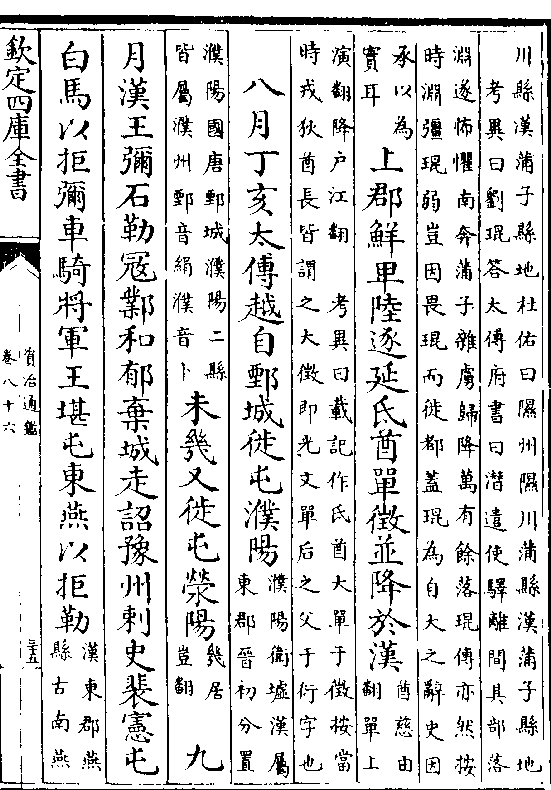 川縣漢蒲子縣地杜佑曰隰州隰川蒲縣漢蒲子縣地
考異曰劉琨答太傅府書曰潛遣使驛離間其部落
淵遂怖懼南奔蒲子雜虜歸降萬有餘落琨傳亦然按
時淵彊琨弱豈因畏琨而徙都蓋琨為自大之辭史因
承以為
實耳
上郡鮮卑陸逐延氐酋單徵並降於漢
酋慈由
翻單上
演翻降户江翻 考異曰載記作氐酋大單于徵按當
時戎狄酋長皆謂之大徵即光文單后之父于衍字也
八月丁亥太傅越自鄄城徙屯濮陽
濮陽衛墟漢屬
東郡晉初分置
濮陽國唐鄄城濮陽二縣
皆屬濮州鄄音絹濮音卜
未幾又徙屯滎陽
幾居
豈翻
九
月漢王彌石勒冦鄴和郁棄城走詔豫州刺史裴憲屯
白馬以拒彌車騎將軍王堪屯東燕以拒勒
漢東郡燕
縣古南燕
欽定四庫全書
資治通鑑
卷八十六